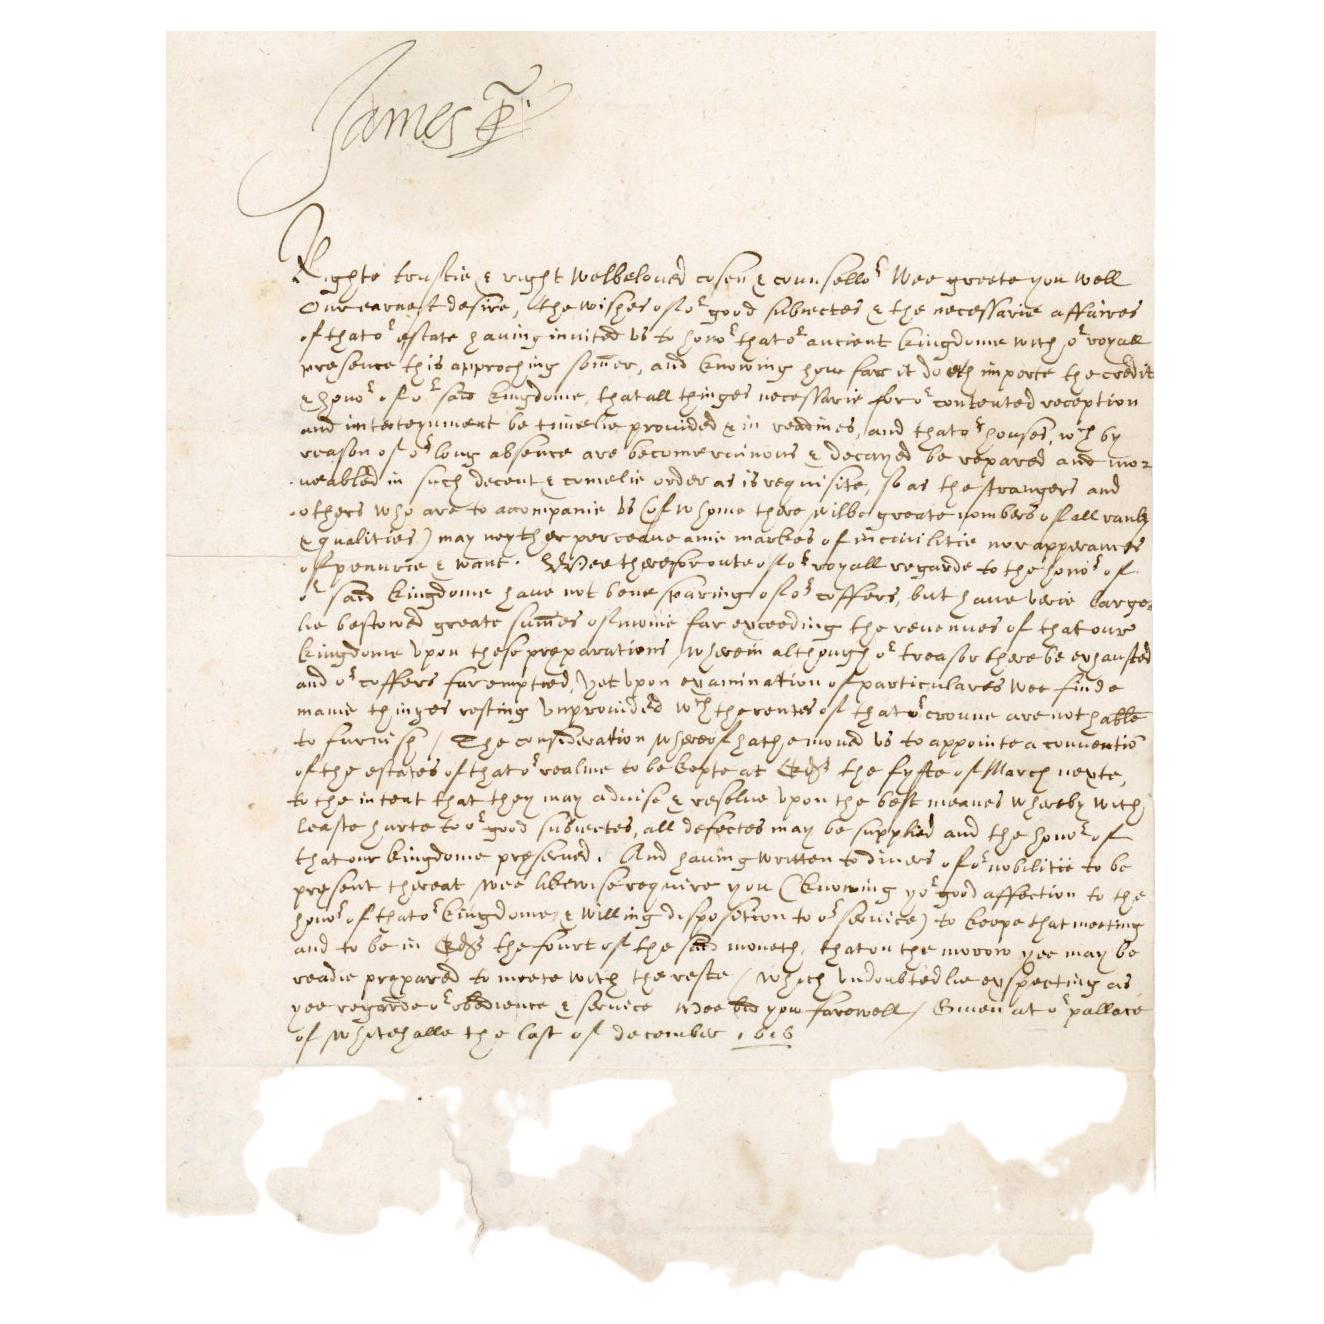 James R.
Righte trustie & right welbeloued cosen & counsello^r Wee greete you well
Our earnest desire, the wishes of o^r good subiectes & the necessarie affaires
of that o^r estate hauing inuited vs to hono^r that o^r ancient kingdome with o^r royall
presence this approching som̅er, and knowing how farr it doeth importe the credit
& hono^r of o^r said kingdome, that all thinges necessarie for o^r contented reception
and interteynment be timelie prouided & in readines, and that o^r houses, w^ch by
reason of o^r long absence are become ruinous & decayed be repared and mo-
ueabled in such decent & comelie order as is requisite, so as the strangers and
others who are to accompanie vs (of whome there wilbe greate nombers of all rankes
& qualities) may neyther perceaue anie markes of inciuilitie nor apperances
of penurie & want. Wee therefor oute of o^r royall regarde to the hono^r of
o^r said kingdome haue not bene sparing of o^r coffers, but haue verie large-
lie bestowed greate sum̅es of monie far exceeding the reuenues of that our
kingdome vpon these preparations, wherein although o^r treasor there be exhausted
and o^r coffers far emptied, yet vpon examination of particulares wee finde
manie thinges resting vnprouided w^ch the rentes of that o^r croune are not hable
to furnish / The consideration whereof hath moued vs to appointe a conuentio̅
of the estates of that o^r realme to be kepte at Ed^r the fyfte of March nexte,
to the intent that they may aduise & resolue vpon the best meanes whereby with
leaste hurte to o^r good subiectes, all defectes may be supplied and the hono^r of
that our kingdome preserued. And hauing written to diuers of o^r nobilitie to be
present thereat wee likewise require you (knowing yo^r good affection to the
hono^r of that o^r kingdome, & willing disposition to o^r seruice) to keepe that meeting
and to be in Ed^r the fourt of the said moneth, that on the morow yee may be
readie prepared to meete with the reste / which vndoubtedlie expecting as
yee regarde o^r obedience & seruice Wee bid you farewell / Giuen at o^r pallace
of Whitehalle the last of december 1616